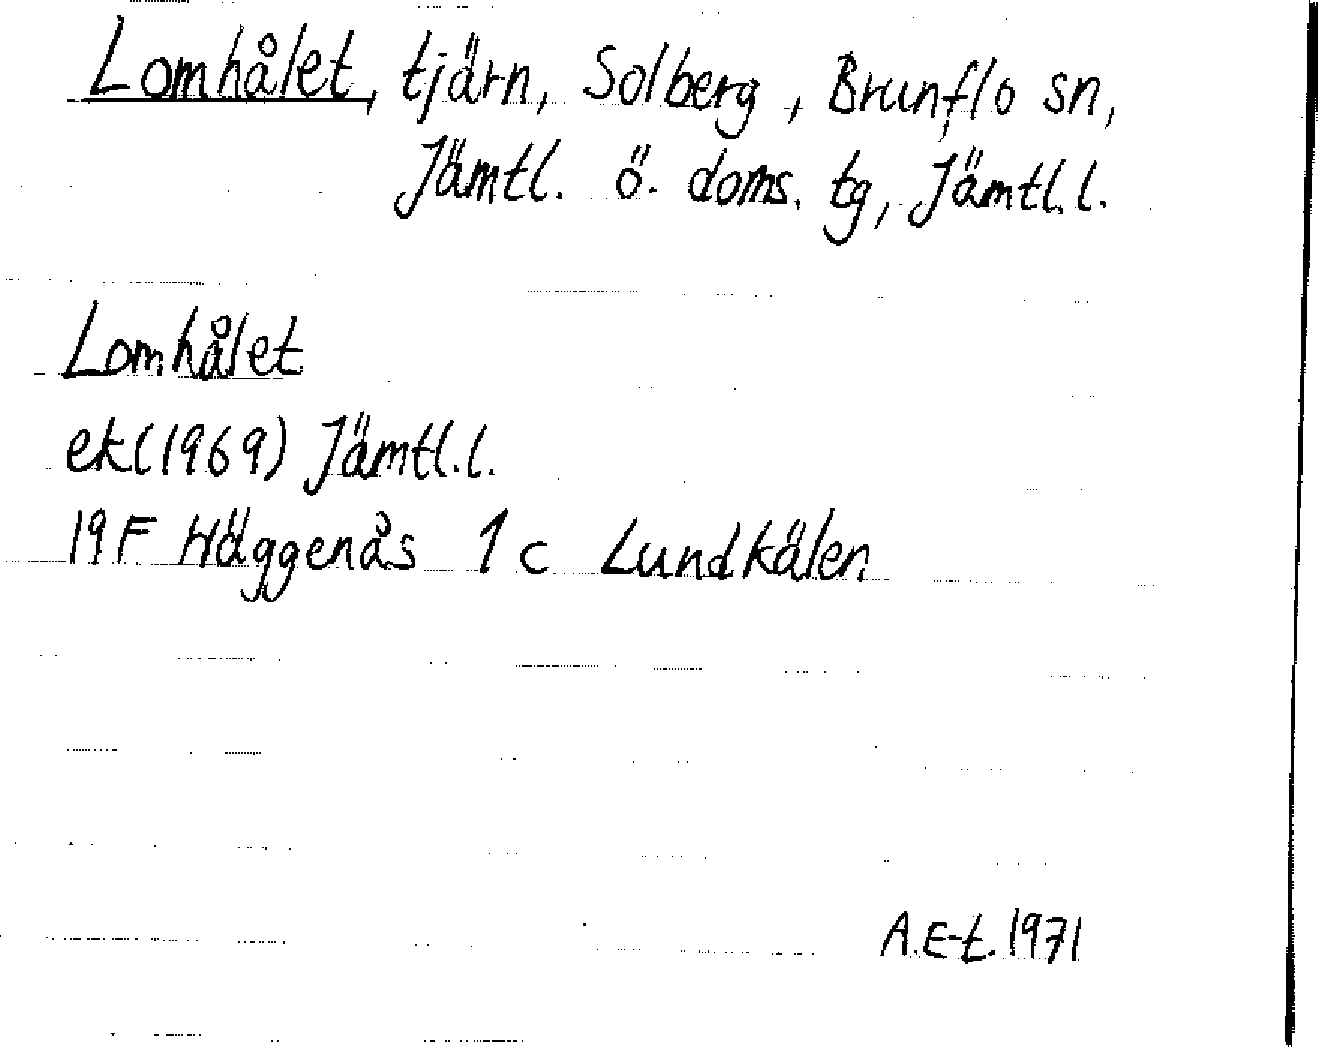 Lomhålet, tjärn, Solberg, Brunflo sn,
Jämtl. ö. doms. tg, Jämtl. l.
Lomhålet
ek (1969) Jämtl. l.
19 F Häggenås 1 c Lundkälen
A. E-t. 1971